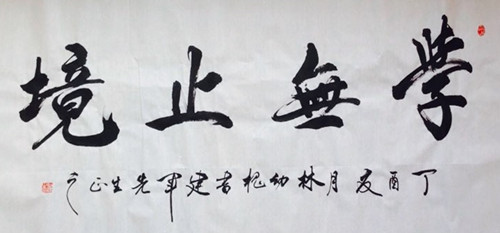 學無止境
丁酉夏月林幼書建軍先生正之